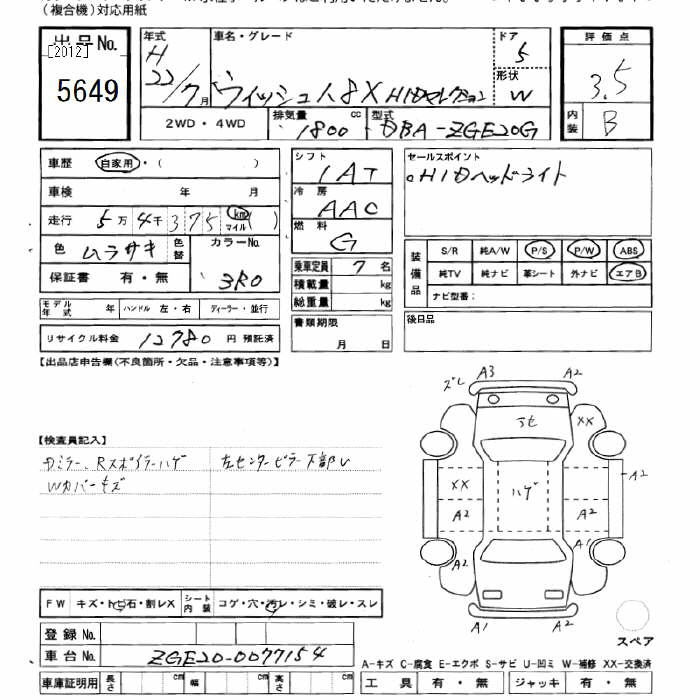 (複合機)対応用紙
出品No.
[2012]
5649
年式
H
22/7月
車名・グレード
ウィッシュ 1.8X HIDセレクション
ドア
5
形状
W
2WD・4WD
排気量
1800
cc
型式
DBA-ZGE20G
評価点
3.5
内装
B
車歴 自家用・( )
車検 年 月
走行 5万4千375 km マイル( )
色 ムラサキ
色替
カラーNo.
3R0
保証書 有・無
モデル年式 年 ハンドル 左・右 ディーラー・並行
リサイクル料金 12780 円 預託済
シフト
1AT
冷房
AAC
燃料
G
乗車定員 7名
積載量 kg
総重量 kg
書類期限
月 日
セールスポイント
。HIDヘッドライト
装備品
S/R 純A/W P/S P/W ABS
純TV 純ナビ 革シート 外ナビ エアB
ナビ型番:
後日品
【出品店申告欄(不良箇所・欠品・注意事項等)】
【検査員記入】
Dミラー、Rスポイラーハゲ
左センターピラー下部U
Wカバーキズ
ズレ A3 A2
下セ
XX
XX
ハゲ
A2
A2
A2
A1
A2
A1
A2
スペア
FW キズ・トビ石・割レX
シート内装
コゲ・穴・汚レ・シミ・破レ・スレ
登録No.
車台No. ZGE20-0077154
車庫証明用 長さ cm 幅 cm 高さ cm
A-キズ C-腐食 E-エクボ S-サビ U-凹ミ W-補修 XX-交換済
工具 有・無 ジャッキ 有・無